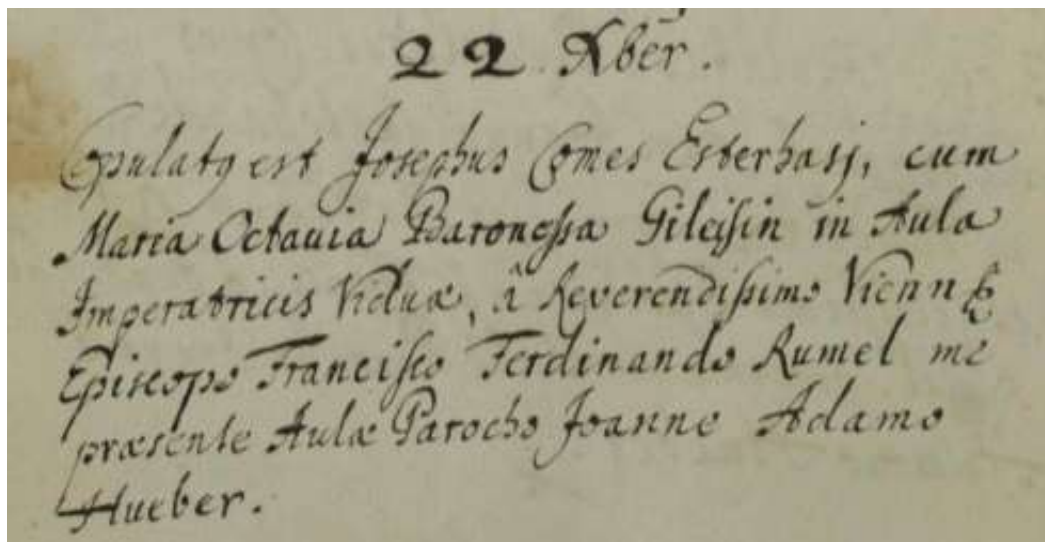 22. Xber.
Copulatꝰ est Josephus Comes Esterhasj, cum
Maria Octavia Baronessa Gileisin in Aula
Imperatricis Viduæ, â Reverendissimo Vienn
Episcopo Francisco Ferdinando Rumel me
præsente Aulæ Parocho Joanne Adamo
Hueber.